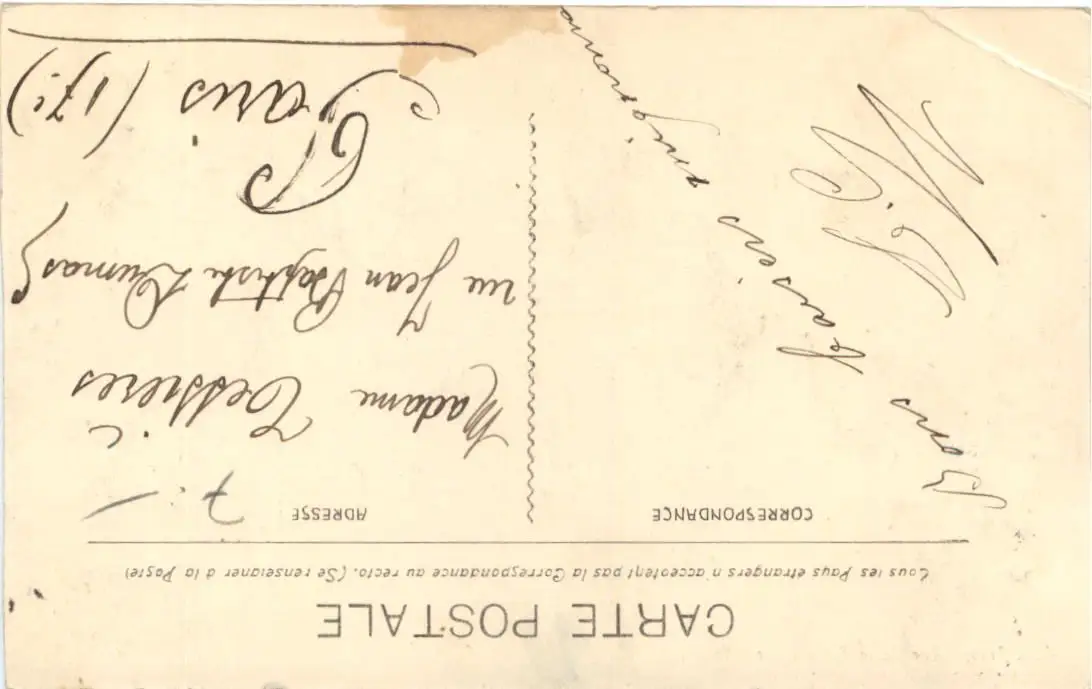 CARTE POSTALE
Tous les Pays étrangers n'acceptent pas la Correspondance au recto. (Se renseigner à la Poste)
CORRESPONDANCE
Bons baisers mignonne
ADRESSE
7:-
Madame
rue Jean Baptiste Dumas 5
Paris (17e)